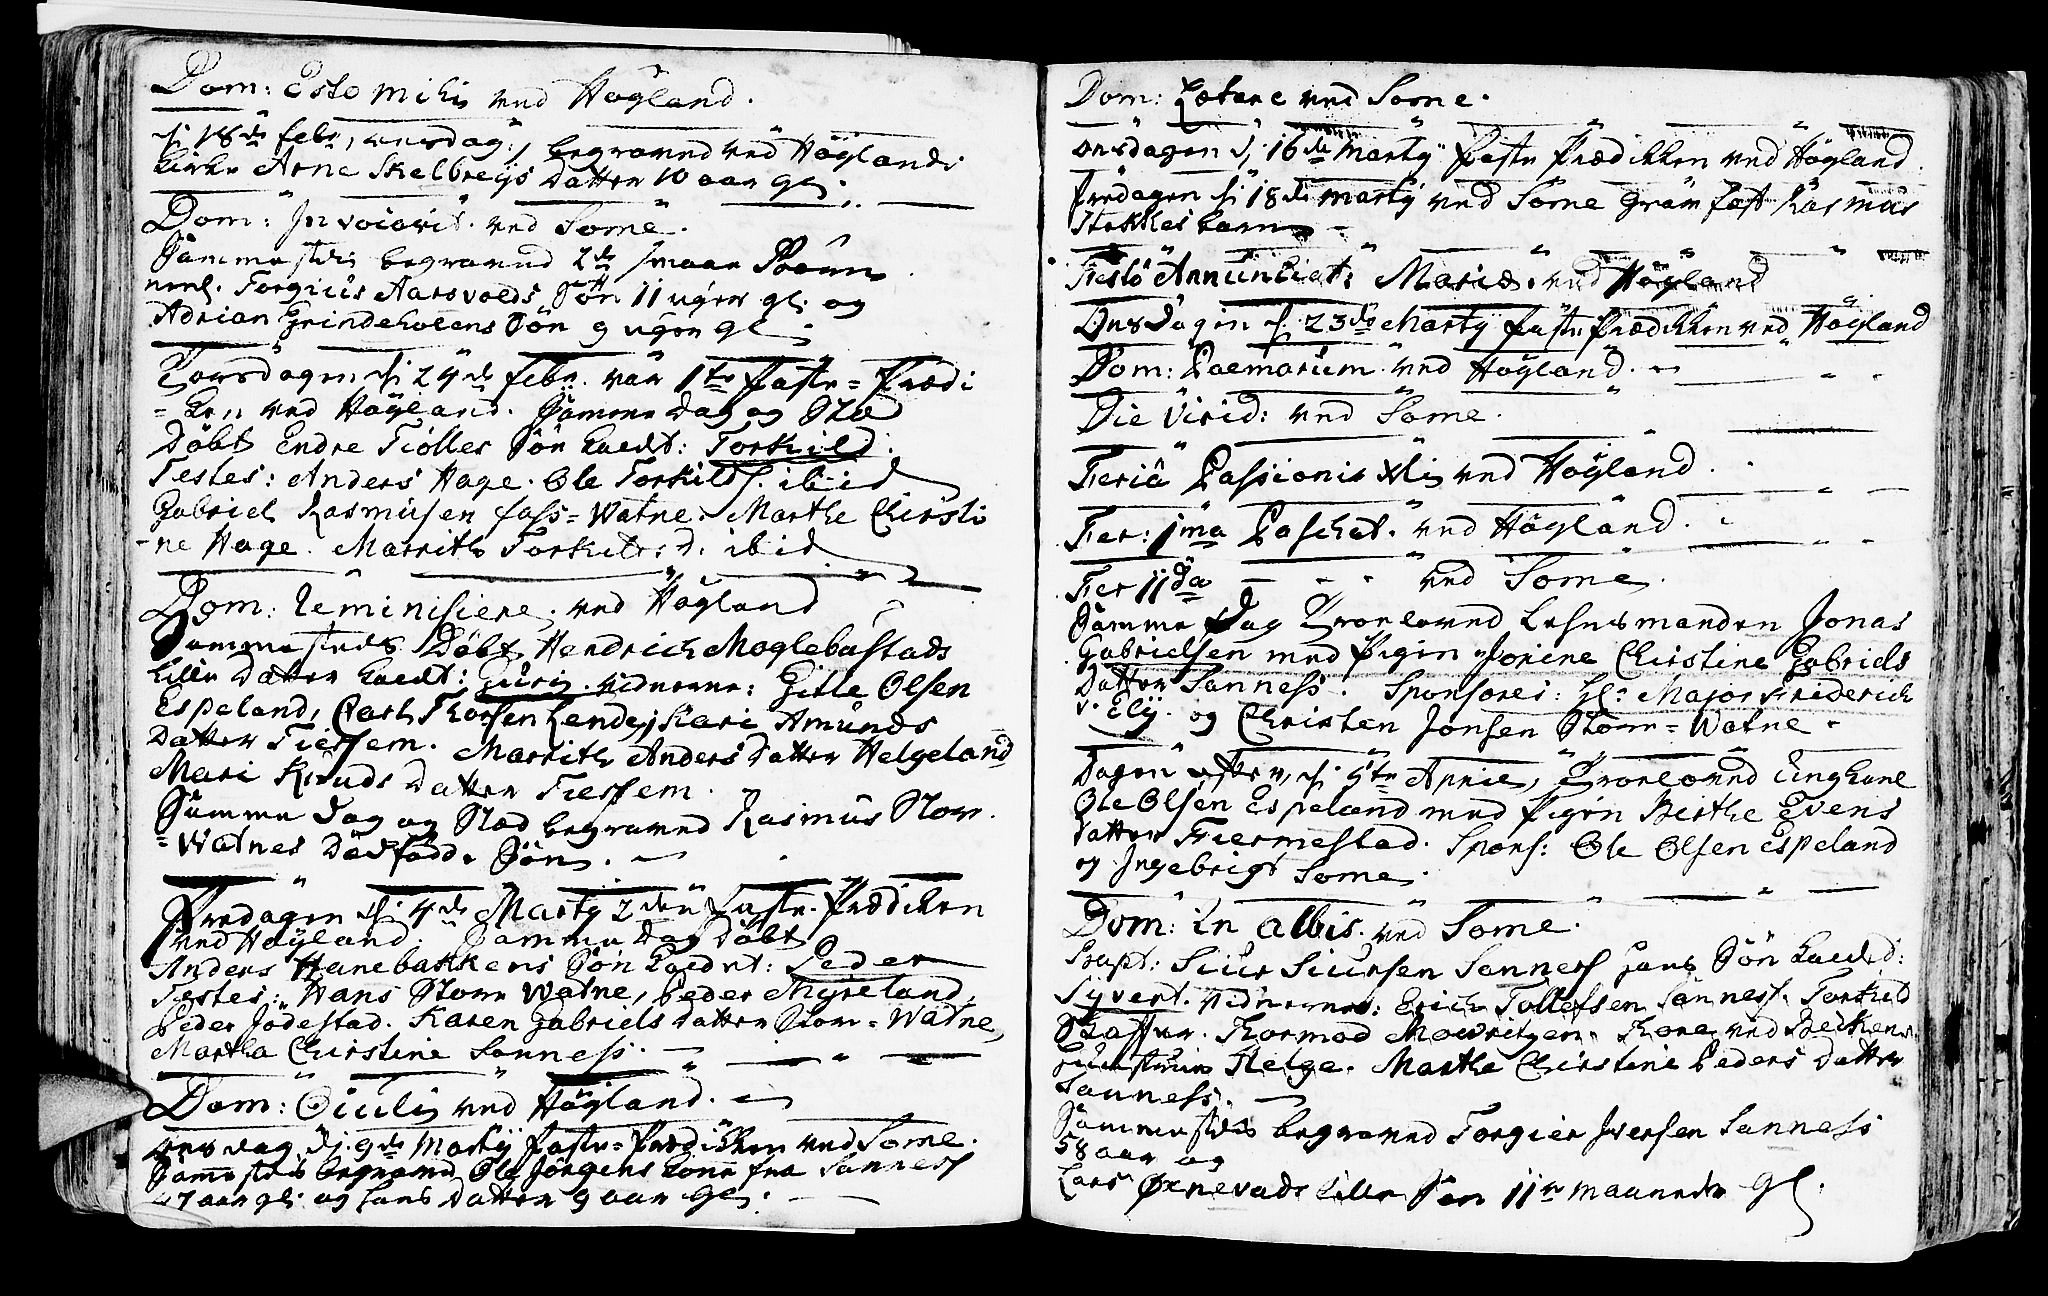 Dom: Esto Mihi ved Høyland.
d: 18de febr, onsdag, begravet ved Høylands
kirke Arne Skelbreys datter 10 aar gl.
Dom: Invocavit ved Some.
Sammestedz begravet 2de smaae Børn
neml. Torgius Aarsvolds Søn 11 uger gl. og
Adrian Grindeholens Søn 9 uger gl.
Torsdagen d: 24de febr. var 1te faste=Prædi
=ken ved Høyland. Samme dag og Stæd
Döbt Endre Fiölles Sön kaldt: Torkild.
Testes: Anders Hage. Ole Torkilds: ibid
Gabriel Rasmusen foss=Watne. Marthe Christi
-ne Hage. Marrithe Torkilds: D. ibid
Dom: Reminiscere. ved Høyland
Sammesteds Döbt Hendrich Maglebustads
lille datter kaldt: Guri. vidnerne: Gitle Olsen
Espeland, Carl Thorsen Lende, Kari Amunds
datter Tiessem. Marrithe Anders datter Helgeland
Mari Knuds datter Tiessem.
Samme dag og Stæd begravet Rasmus Stor
=Watnes Dødfødde Søn.
Fredagen d: 4de Marty 2den faste Prædiken
ved Høyland. Samme dag döbt
Anders Hanebakkens Søn kaldet: Peder
Testes: Hans Store Watne, Peder Myreland,
Peder Jödestad. Karen Gabriels datter Stor=Watne,
Martha Christine Sanness.
Dom: Oculi ved Høyland.
onsdag d: 9de Marty faste=Prædikken ved Some.
Sammestedz begravet Ole Jørgens kone fra Sanness
47 aar gl. og hans datter 9 aar gl.
Dom: Lætare ved Some.
onsdagen d: 16de Marty faste Prædikken ved Høyland.
fredagen d: 18de Marty ved Some Rasmus
Stokkes barn
Festo Annunciat: Mariæ. ved Høyland
Onsdagen d. 23de Marty faste Prædikken ved Høyland
Dom: Palmarum ved Høyland.
Die Virid: ved Some.
Feria Passionis Xti ved Høyland.
Fer: 1ma Paschat. ved Høyland.
Fer 11da - - - ved Some.
Samme Dag Trolovet Lehnsmanden Jonas
Gabrielsen med Pigen Jorine Christine Gabriels
datter Sanness. Sponsores: Hl: Major Friderich
v. Ely. og Christen Jonsen Stor=Watne.
Dagen efter, d: 5te Aprile, Trolovet Ungkarl
Ole Olsen Espeland med Pigen Berthe Evens
datter Fiermestad. Spons: Ole Olsen Espeland
og Ingebrigt Some.
Dom: in albis. ved Some.
Bapt: Siur Siursen Sanness hans Søn kaldet:
Syvert. vidnerne: Erich Tollefsen Sanness. Torkild
Thormod Mowretzen. Kone ved
Helge. Marthe Christine Peders datter
Sanness.
Sammestedz begravet Torgier Iversen Sanness
58 aar og
Lars Ørnevads lille Søn 11te maaneder gl.